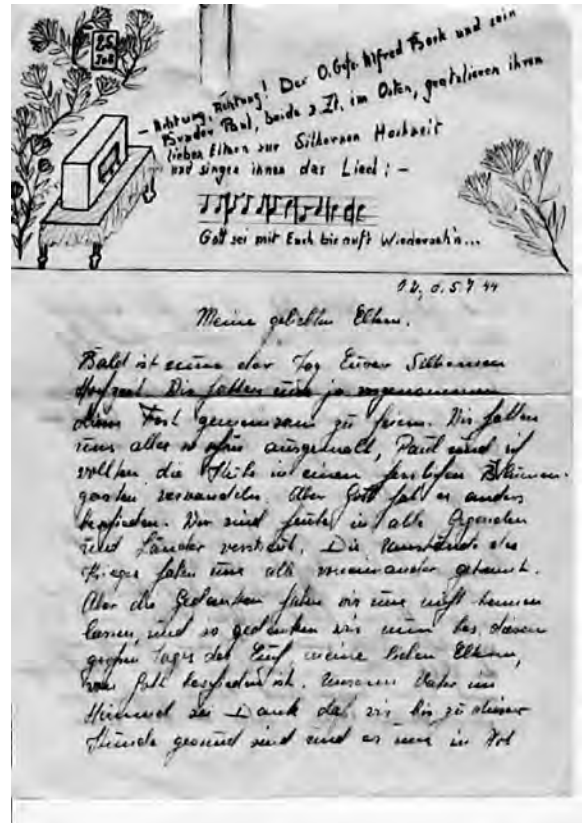 25.
Juli
– Achtung, Achtung! Der O.Gefr. Alfred Bork und sein
Bruder Paul, beide z.Zt. im Osten, gratulieren ihren
lieben Eltern zur Silbernen Hochzeit
und singen ihnen das Lied: –
Gott sei mit Euch bis auf's Wiederseh'n...
O.U., d. 5.7.44
Meine geliebten Eltern.
Bald ist nun der Tag Eurer Silbernen
Hochzeit. Wir hatten uns ja vorgenommen
dieses Fest gemeinsam zu feiern. Wir hatten
uns alles so schön ausgemalt, Paul und ich
wollten die Stube in einen festlichen Blumen-
garten verwandeln. Aber Gott hat es anders
beschieden. Wir sind heute in alle Gegenden
und Länder verstreut. Die Umstände des
Krieges haben uns alle voneinander getrennt.
Aber die Gedanken haben wir uns nicht trennen
lassen, und so gedenken wir nun des
großen Tages der Euch, meine lieben Eltern,
von Gott beschieden ist. Unserm Vater im
Himmel sei Dank daß wir bis zu dieser
Stunde gesund sind und es uns in